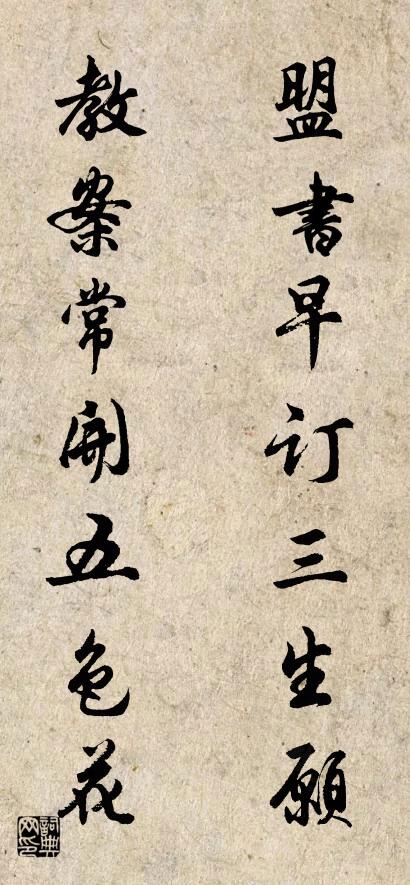 盟書早订三生願
教案常開五色花
詞典网印